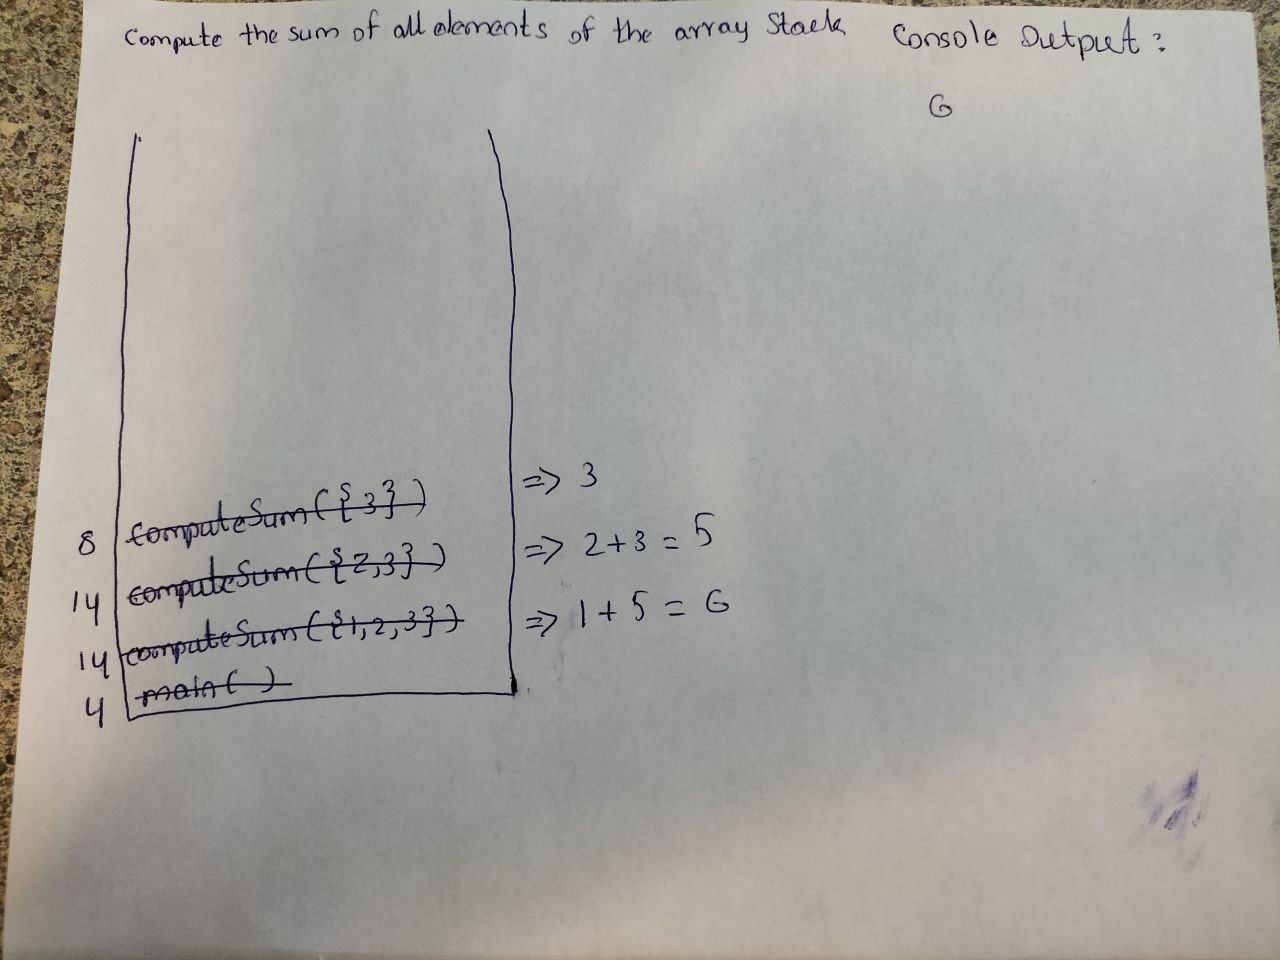 Compute the sum of all elements of the array Stack
Console Output:
6
8 computeSum({3}) => 3
14 computeSum({2,3}) => 2+3 = 5
14 computeSum({1,2,3}) => 1+5 = 6
4 main( )